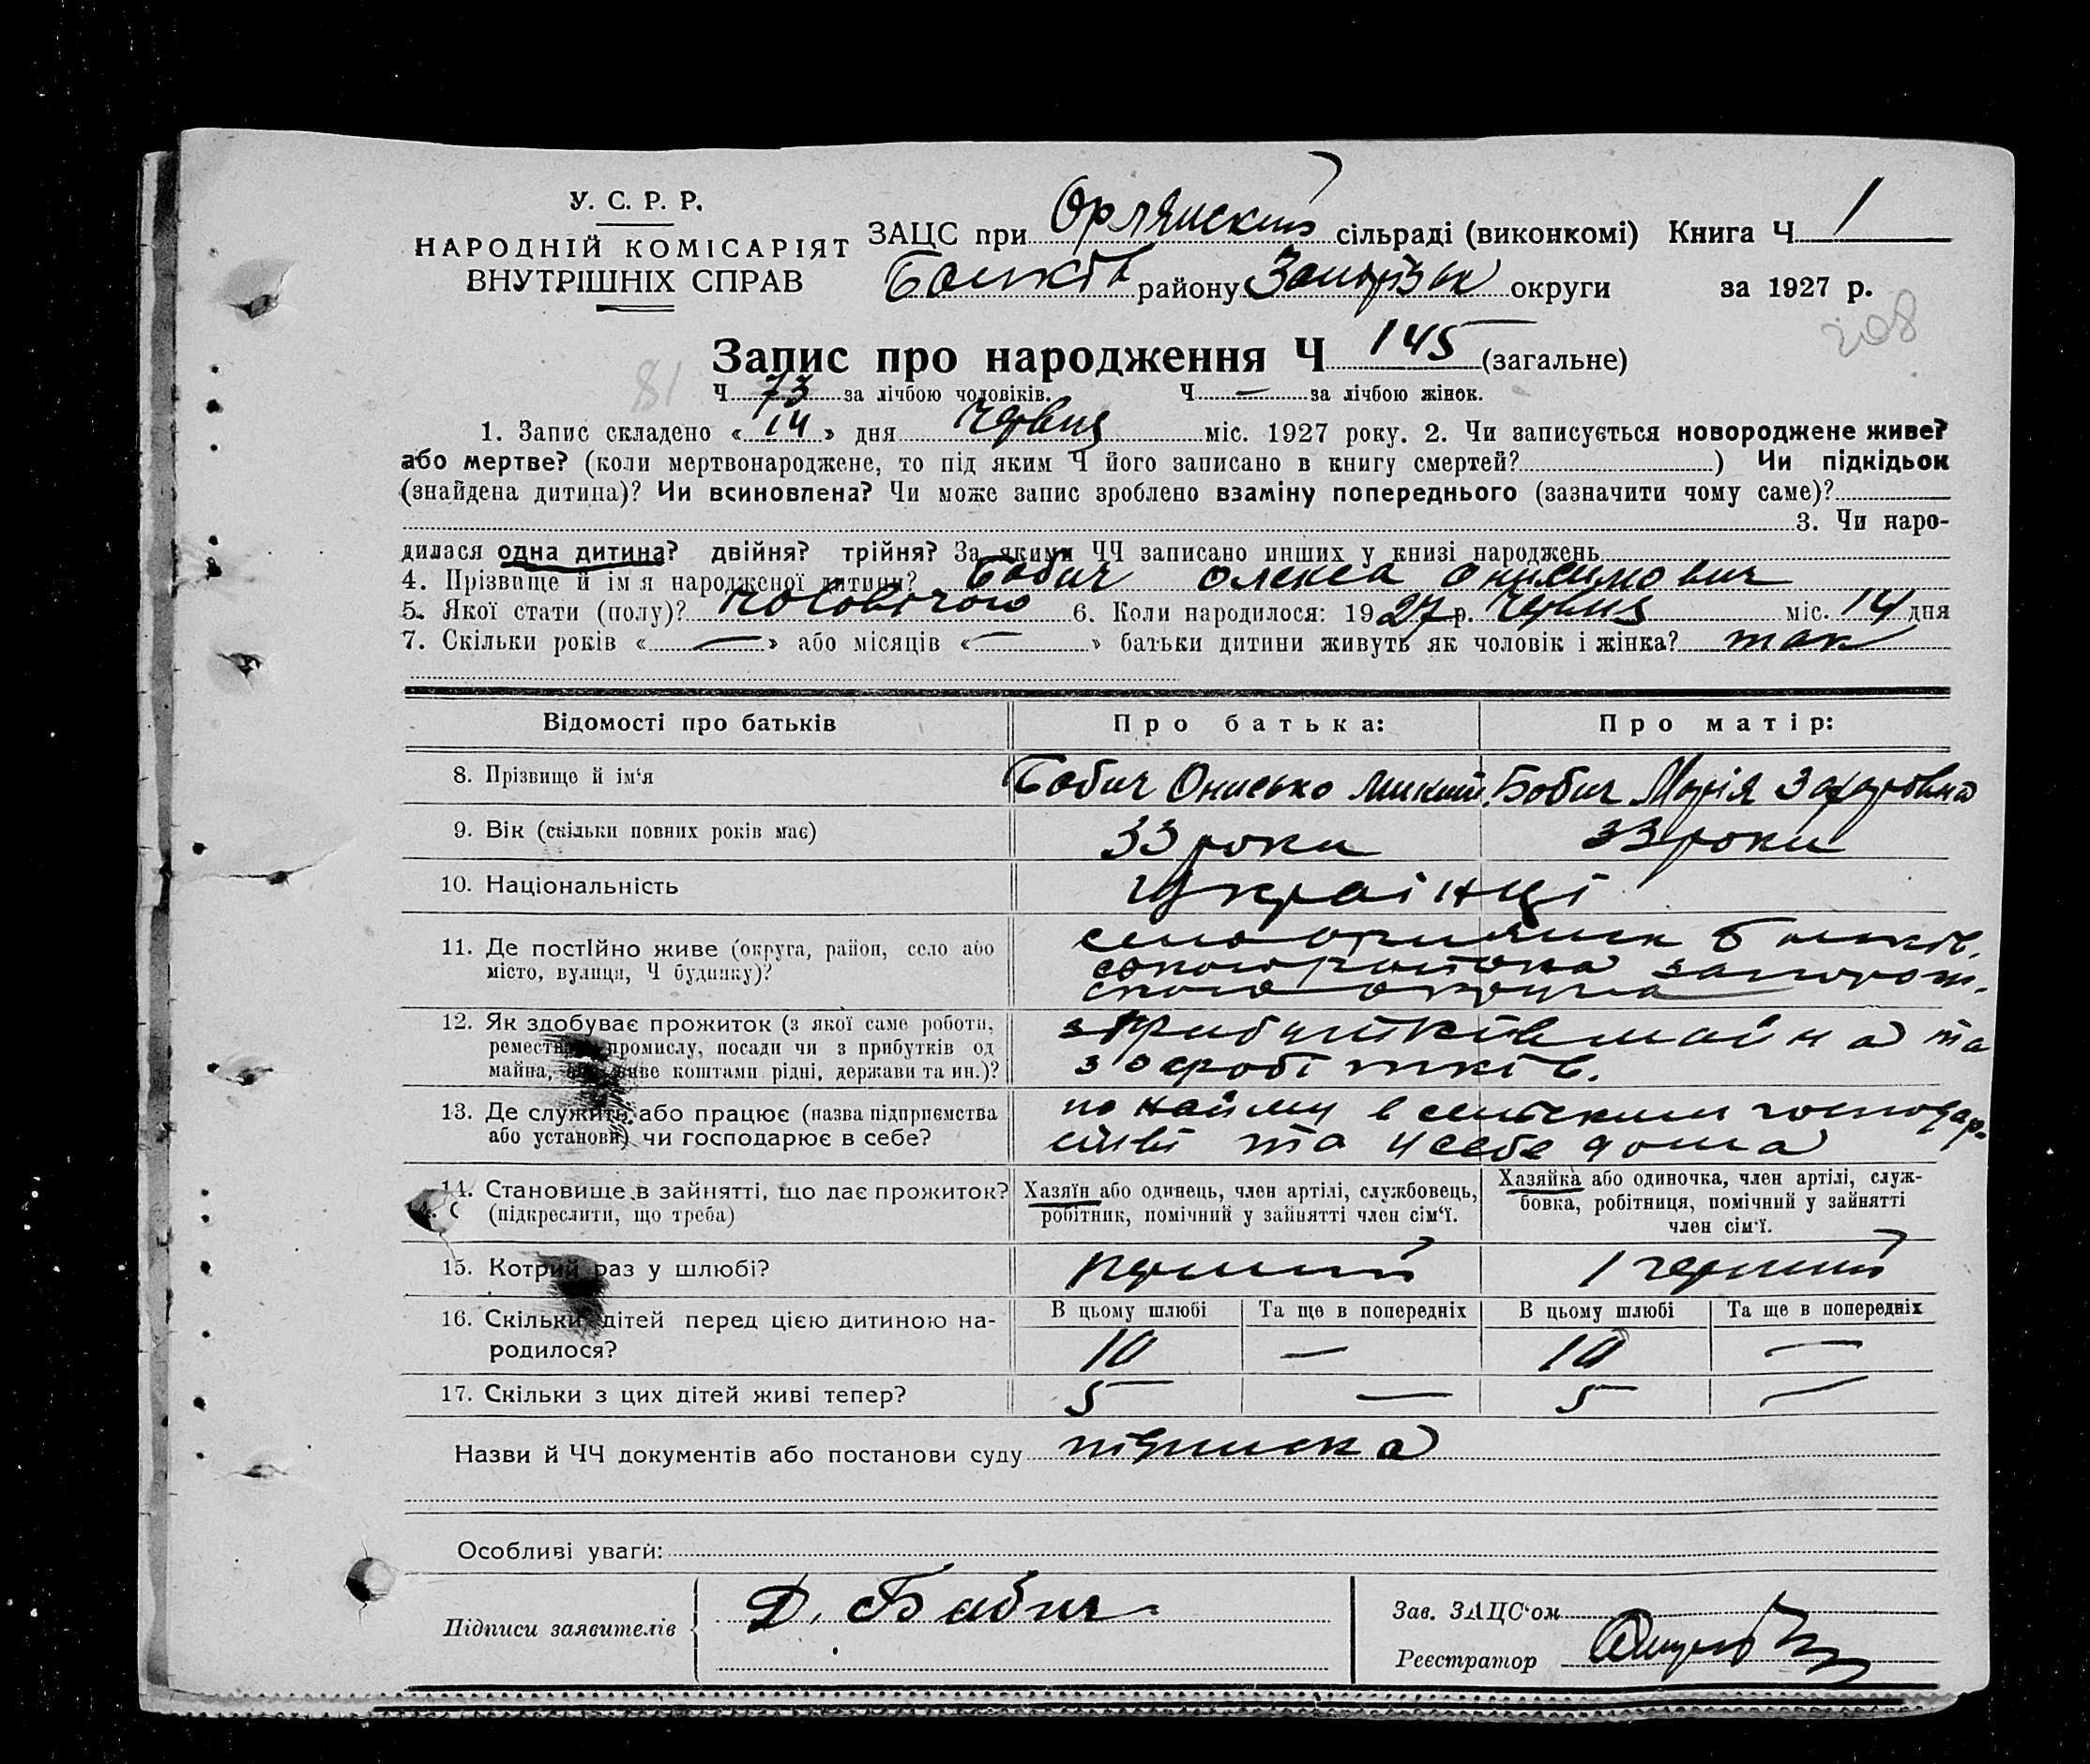 У. С. Р. Р.
НАРОДНІЙ КОМІСАРІЯТ
ВНУТРІШНІХ СПРАВ
ЗАЦС при Орлянский сільраді (виконкомі) Книга Ч 1
району Запоріз округи за 1927 р.
208
Запис про народження Ч 145 (загальне)
81
Ч 73 за лічбою чоловіків. Ч — за лічбою жінок.
1. Запис складено « 14 » дня червня міс. 1927 року. 2. Чи записується новороджене живе?
або мертве? (коли мертвонароджене, то під яким Ч його записано в книгу смертей?) Чи підкідьок
(знайдена дитина)? Чи всиновлена? Чи може запис зроблено взаміну попереднього (зазначити чому саме)?
3. Чи наро-
дилася одна дитина? двійня? трійня? За якими ЧЧ записано инших у книзі народжень
4. Прізвище й ім я народженої дитини? Бабич Олекса Онисимович
5. Якої стати (полу)? 6. Коли народилося: 1927 р. червня міс. 14 дня
7. Скільки років « — » або місяців « — » батьки дитини живуть як чоловік і жінка? так
Відомості про батьків Про батька: Про матір:
8. Прізвище й ім'я Бабич Онисько Микит. Бабич Марія Захаровна
9. Вік (скільки повних років має) 33 роки 33 роки
10. Національність Українці
11. Де постійно живе (округа, район, село або
місто, вулиця, Ч будинку)?
село
12. Як здобуває прожиток (з якої саме роботи,
ремества, промислу, посади чи з прибутків од
майна, чи живе коштами рідні, держави та ин.)?
з прибутків майна та
з заробітків.
13. Де служить або працює (назва підприємства
або установи) чи господарює в себе?
по найму в сільським господар.
стві та у себе дома
14. Становище в зайнятті, що дає прожиток?
(підкреслити, що треба)
Хазяїн або одинець, член артілі, службовець,
робітник, помічний у зайнятті член сім'ї.
Хазяйка або одиночка, член артілі, служ-
бовка, робітниця, помічний у зайнятті
член сім'ї.
15. Котрий раз у шлюбі? перший 1 перший
16. Скільки дітей перед цією дитиною на-
родилося?
В цьому шлюбі Та ще в попередніх В цьому шлюбі Та ще в попередніх
10 — 10 —
17. Скільки з цих дітей живі тепер? 5 — 5 —
Назви й ЧЧ документів або постанови суду підписка
Особливі уваги:
Підписи заявителів Д. Бабич
Зав. ЗАЦС'ом
Реєстратор